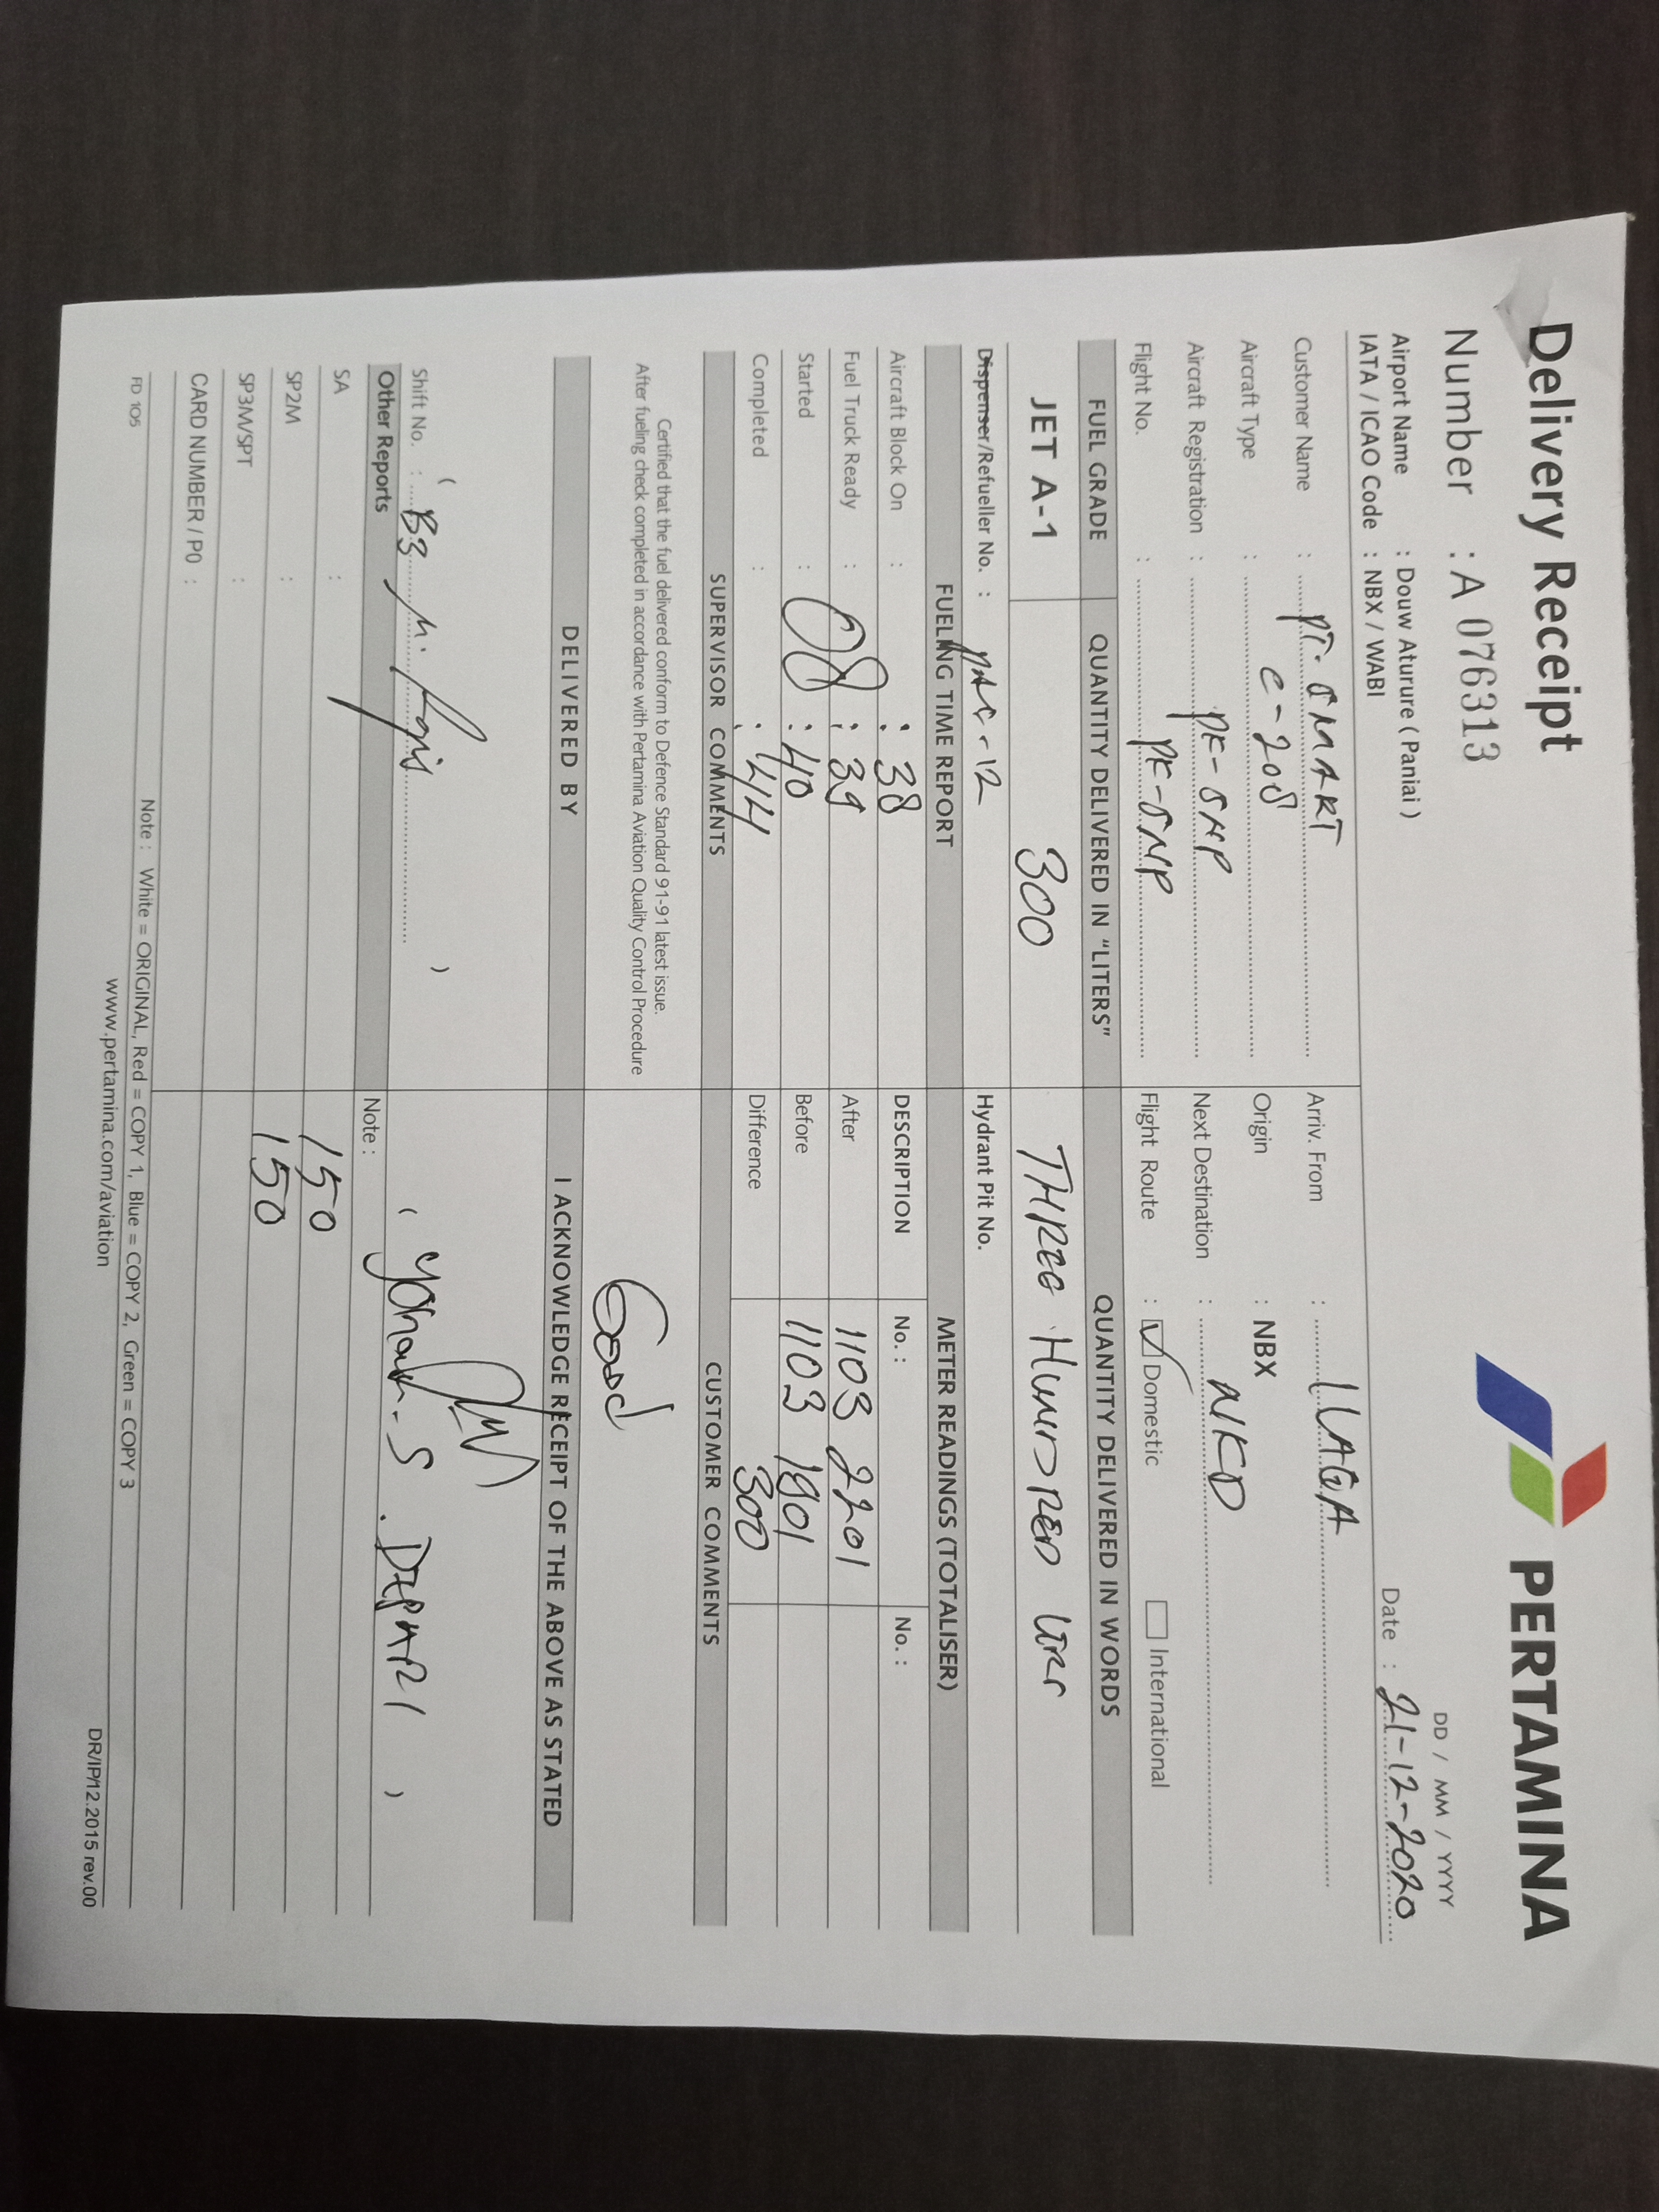 Delivery Receipt
PERTAMINA
Number : A 076313
DD / MM / YYYY
Airport Name : Douw Aturure ( Paniai )
IATA / ICAO Code : NBX / WABI
Date : 21-12-2020
Customer Name : PT. SMART
Arriv. From : ILAGA
Aircraft Type : C-208
Origin : NBX
Aircraft Registration : PK-SNP
Next Destination : WKD
Flight No. : PK-SNP
Flight Route : Domestic International
FUEL GRADE QUANTITY DELIVERED IN "LITERS" QUANTITY DELIVERED IN WORDS
JET A-1 300 THREE HUNDRED LTRS
Dispenser/Refueller No. : PAC-12
Hydrant Pit No.
FUELING TIME REPORT METER READINGS (TOTALISER)
Aircraft Block On : : 38 DESCRIPTION No. : No. :
Fuel Truck Ready : 08 : 39 After 1103 2201
Started : : 40 Before 1103 1901
Completed : : 44 Difference 300
SUPERVISOR COMMENTS CUSTOMER COMMENTS
Certified that the fuel delivered conform to Defence Standard 91-91 latest issue.
After fueling check completed in accordance with Pertamina Aviation Quality Control Procedure
Good
DELIVERED BY I ACKNOWLEDGE RECEIPT OF THE ABOVE AS STATED
( )
Shift No. : B3
( )
Other Reports Note :
SA : 150
SP2M : 150
SP3M/SPT :
CARD NUMBER / PO :
FD 105
Note : White = ORIGINAL, Red = COPY 1, Blue = COPY 2, Green = COPY 3
www.pertamina.com/aviation
DR/IP/12.2015 rev.00